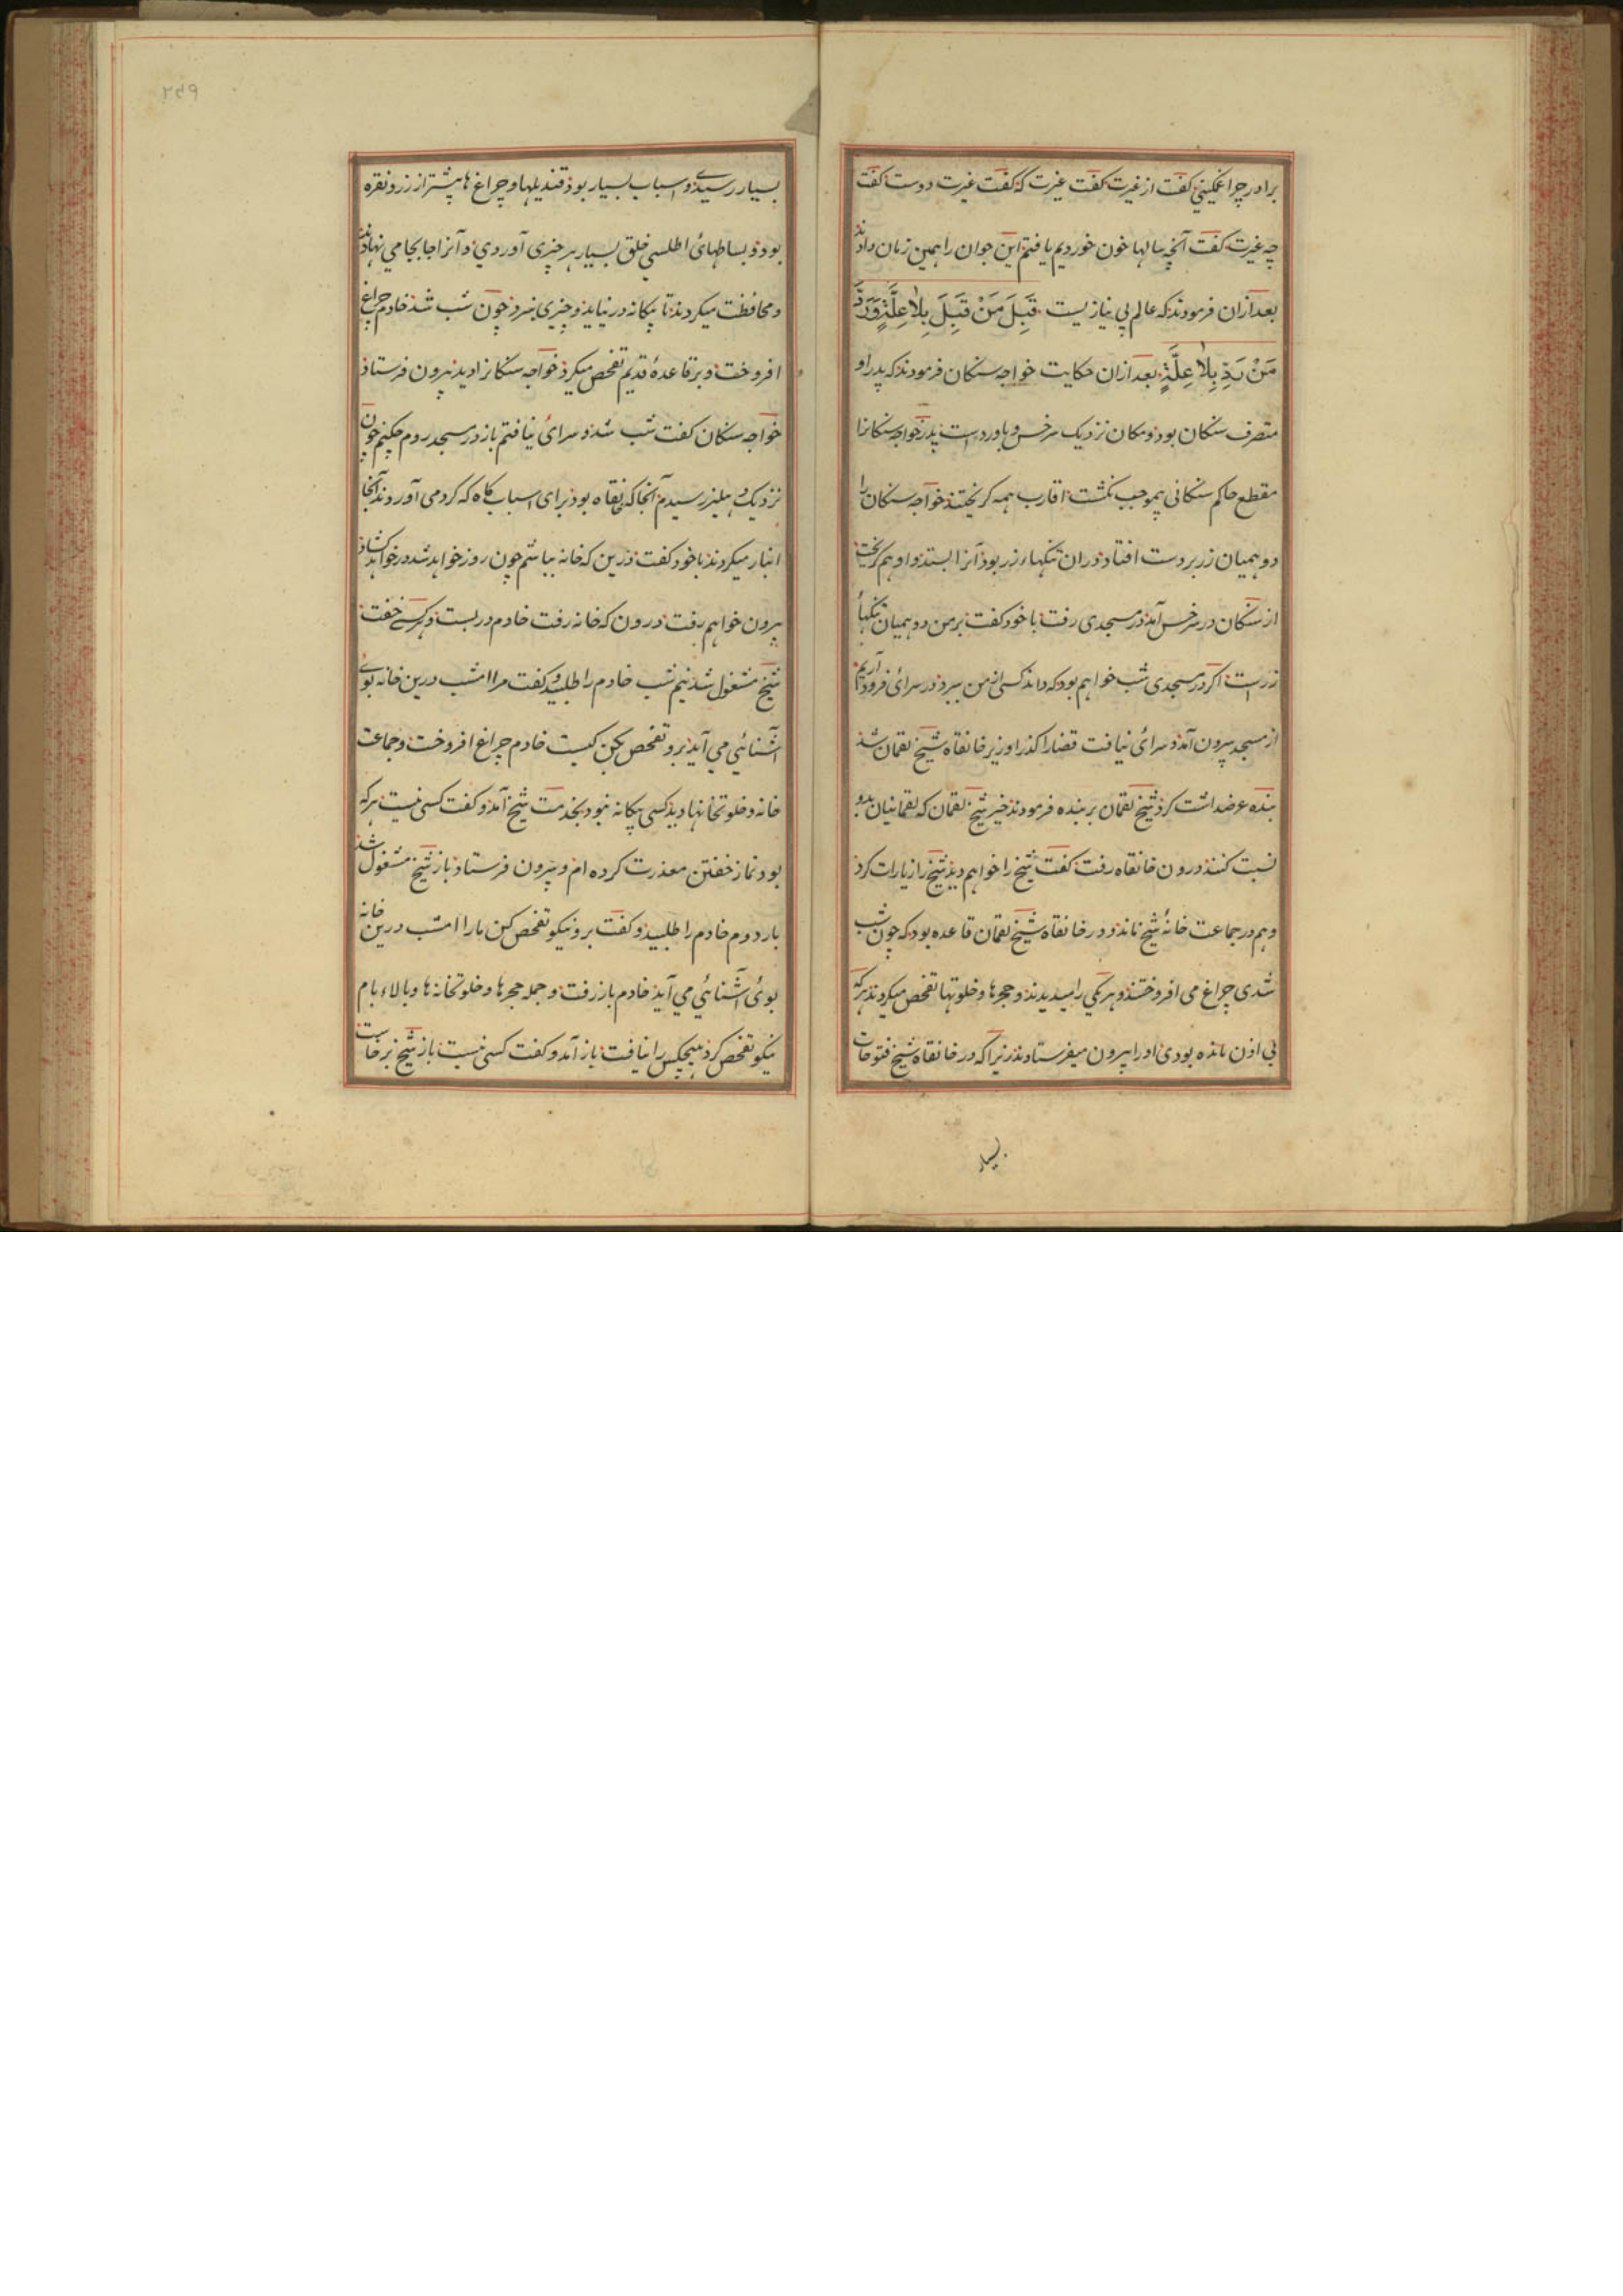 برادر چرا غمگینی گفت از غیرت گفت غیرت که گفت غیرت دوست گفت
چه غیرت گفت آنچه سالها خون خوردیم یافتم این جوان را همین زمان دادند
بعد ازان فرمودند که عالم بی نیازیست قَبِلَ مَنْ قَبِلَ بِلاٰ عِلَّةٍ وَرَدَّ
مَنْ رَدَّ بِلاٰ عِلَّةٍ بعد ازان حکایت خواجه سنکان فرمودند که پدر او
متصرف سنکان بود و سنکان نزدیک سرخس و باورد است پدر خواجه سنکانرا
مقطع حاکم سنکانی بموجب بکشت اقارب همه گریختند خواجه سنکان را
دو همیان زر بر دست افتاد دران تنکهاء زر بود آنرا بستد و او هم گریخت
از سنکان در سرخس آمد در مسجدی رفت با خود گفت بر من دو همیان تنکهاء
زر است اگر در مسجدی شب خواهم بود که داند کسی از من ببرد در سرائی فرود آریم
از مسجد بیرون آمد و سرائی نیافت قضارا گذر او زیر خانقاه شیخ لقمان شد
بنده عرضداشت کرد شیخ لقمان بربنده فرمودند خیر شیخ لقمان که لقمانیان بدو
نسبت کنند درون خانقاه رفت گفت شیخ را خواهم دید شیخ را زیارات کرد
و هم در جماعت خانهٔ شیخ ماند و در خانقاه شیخ لقمان قاعده بود که چون شب
شدی چراغ می افروختند و هر یکی را میدیدند و حجرها و خلوتها تفحص میکردند هر که
بی اذن مانده بودی او را بیرون میفرستادند زیرا که در خانقاه شیخ فتوحات
بسیار
۲۵۹
بسیار رسیدی و اسباب بسیار بود قندیلها و چراغ ها بیشتر از زر و نقره
بود و بساطهای اطلسی خلق بسیار هر چیزی آوردی و آنرا جا بجا می نهادند
و محافظت میکردند تا بیگانه در نیاید و چیزی نبرد چون شب شد خادم چراغ
افروخت و بر قاعدهٔ قدیم تفحص میکرد خواجه سنکانرا دید بیرون فرستاد
خواجه سنکان گفت شب شد و سرائی نیافتم باز در مسجد روم چکنم چون
نزدیک دهلیز رسیدم آنجا که خانقاه بود برای اسباب کاه که گرد می آوردند آنجا
انبار میکردند با خود گفت درین که خانه بباشم چون روز خواهد شد در خواهد کشاد
بیرون خواهم رفت درون که خانه رفت خادم در بست و هر کسی خفت
شیخ مشغول شد نیم شب خادم را طلبید و گفت مرا امشب درین خانه بوی
آشنائی می آید برو تفحص بکن کیست خادم چراغ افروخت و جماعت
خانه و خلوتخانها دید کسی بیگانه نبود بخدمت شیخ آمد و گفت کسی نیست هر که
بود نماز خفتن معذرت کرده ام و بیرون فرستاد باز شیخ مشغول شد
بار دوم خادم را طلبید و گفت برو نیکو تفحص کن مارا امشب درین خانه
بوئی آشنائی می آید خادم باز رفت و جمله حجرها و خلوتخانه ها و بالاء بام
نیکو تفحص کرد هیچکس را نیافت باز آمد و گفت کسی نیست باز شیخ برخاست